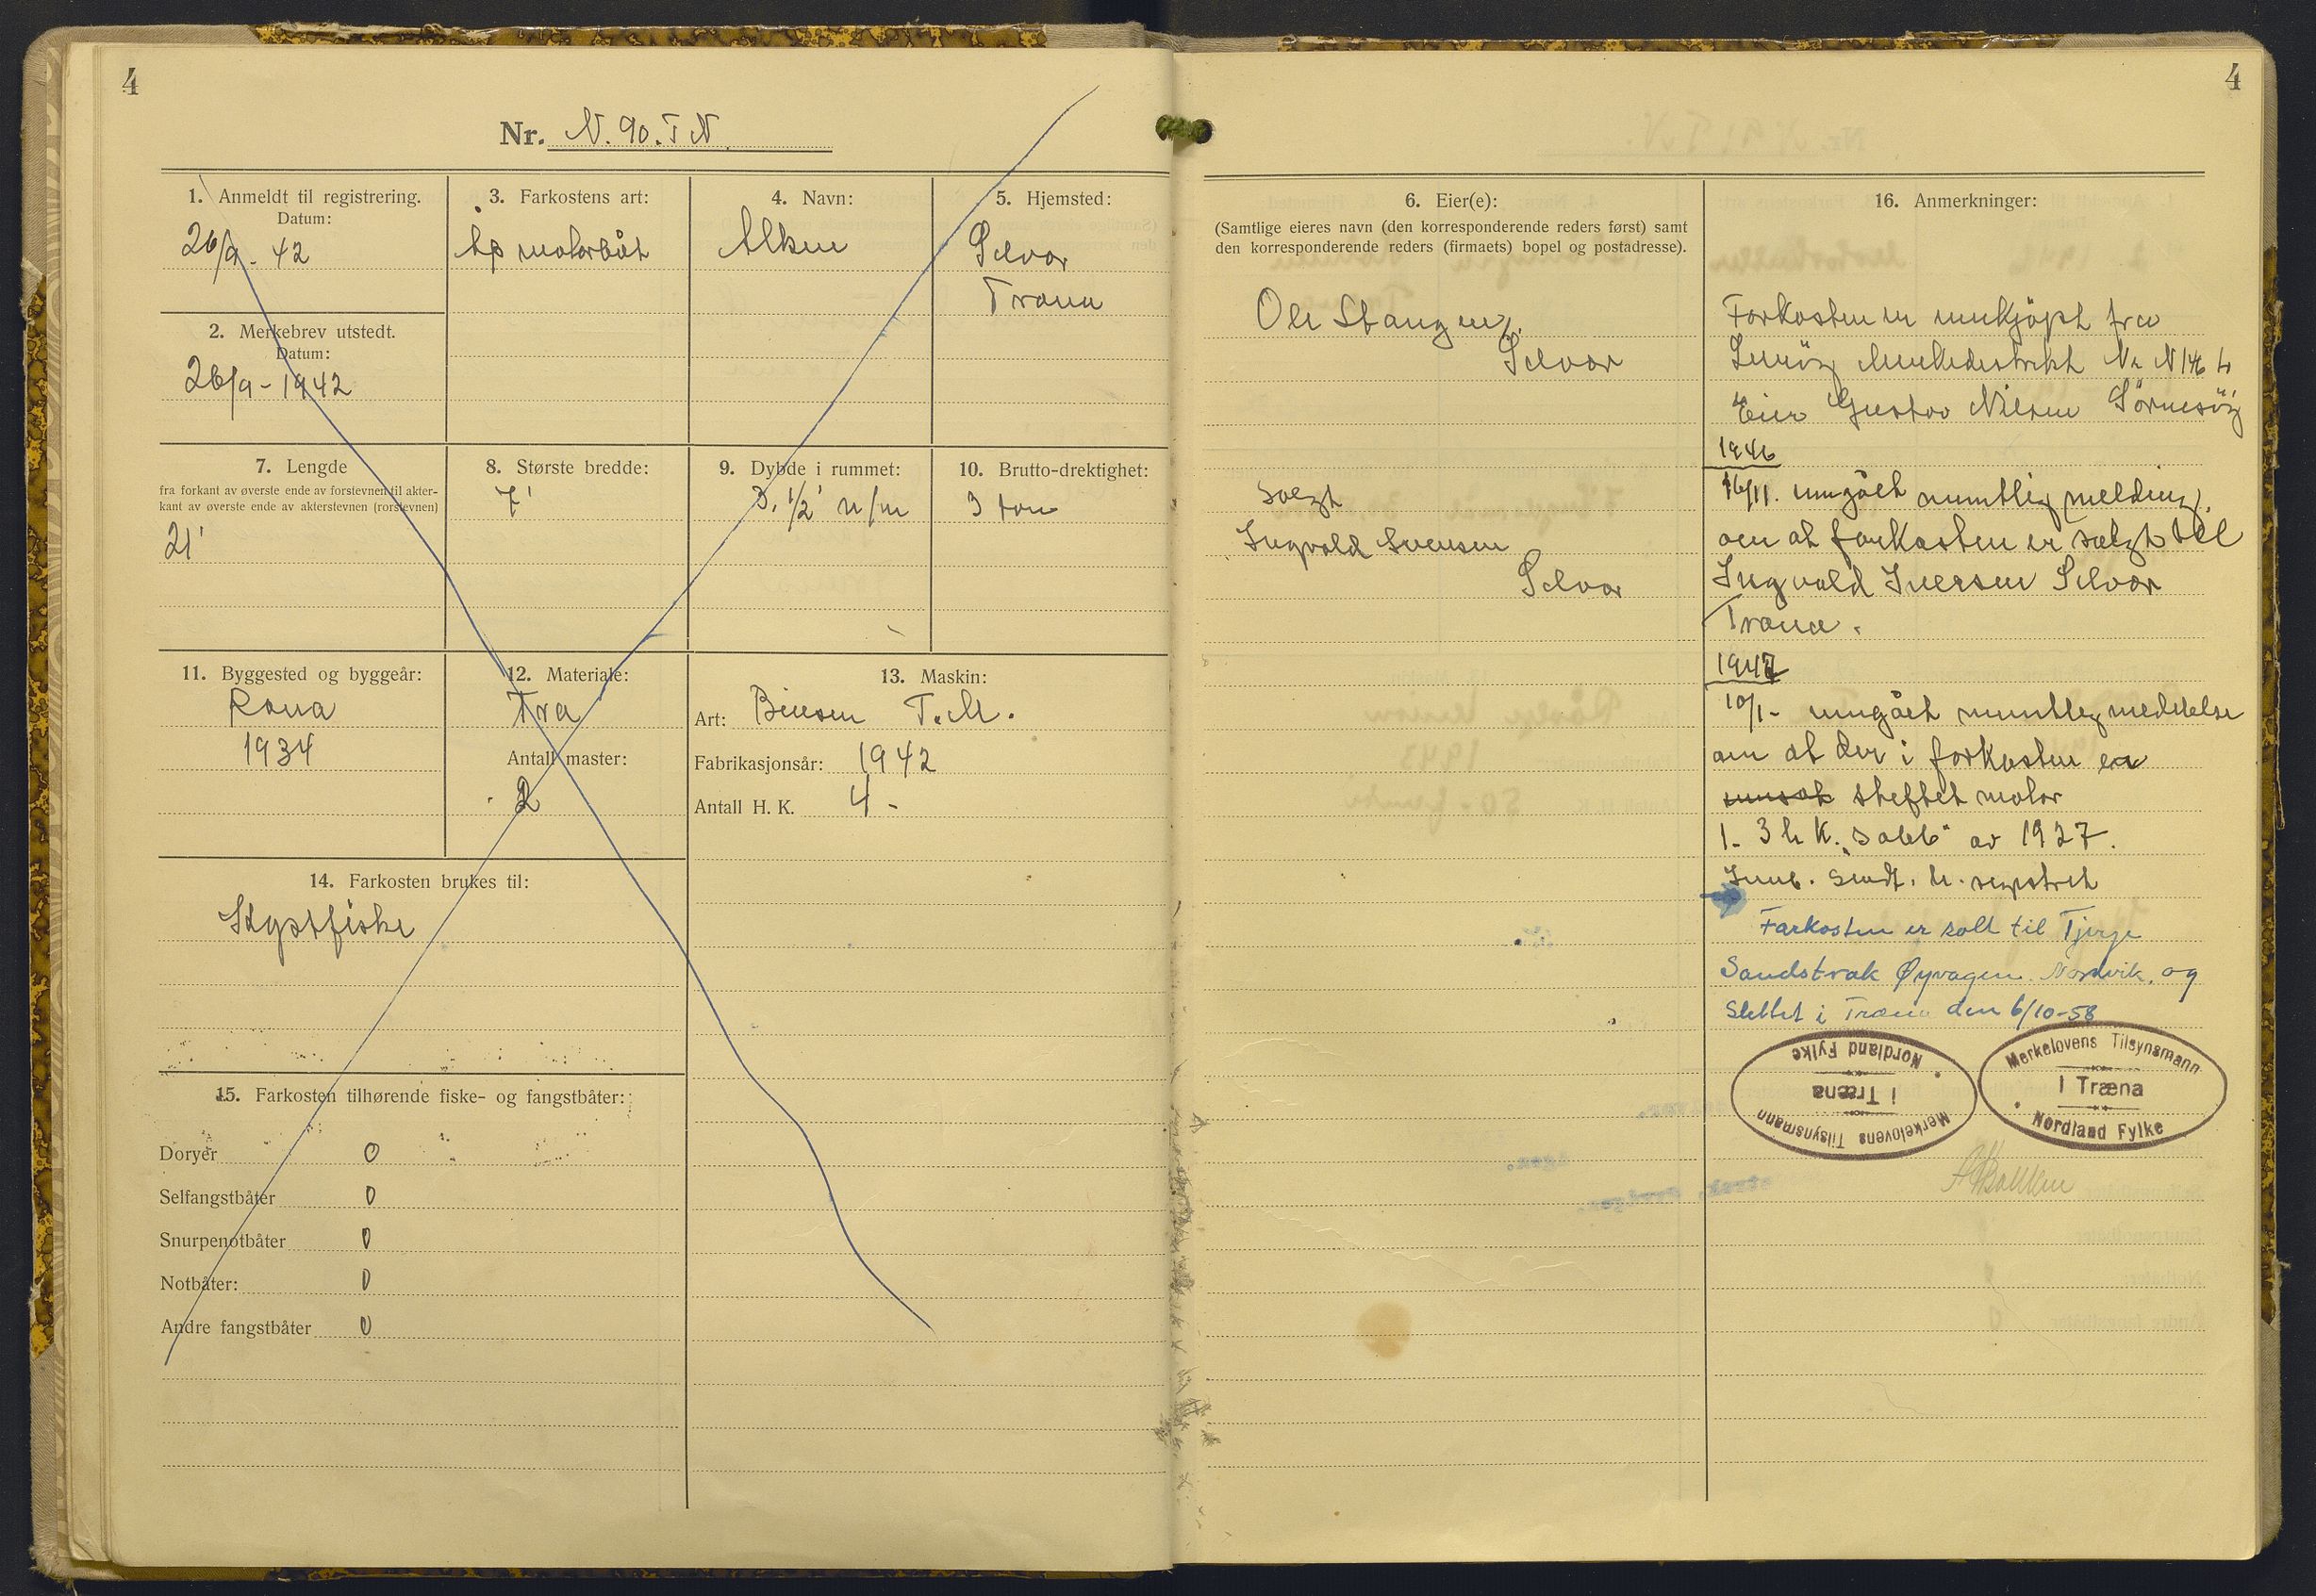 4
Nr. N. 90. T N.
1. Anmeldt til registrering.
Datum:
26/9 - 42
2. Merkebrev utstedt.
Datum:
26/9 - 1942
3. Farkostens art:
motorbåt
4. Navn:
Alken
5. Hjemsted:
Selvær
Træna
7. Lengde
fra forkant av øverste ende av forstevnen til akter-
kant av øverste ende av akterstevnen (rorstevnen)
21'
8. Største bredde:
7'
9. Dybde i rummet:
3. 1/2'
10. Brutto-drektighet:
3 ton
11. Byggested og byggeår:
Rana
1934
12. Materiale:
Tre
Antall master:
2
13. Maskin:
Art:
Fabrikasjonsår: 1942
Antall H. K. 4 -
14. Farkosten brukes til:
Kystfiske
15. Farkosten tilhørende fiske- og fangstbåter:
Doryer 0
Selfangstbåter 0
Snurpenotbåter 0
Notbåter: 0
Andre fangstbåter 0
4
6. Eier(e):
(Samtlige eieres navn (den korresponderende reders først) samt
den korresponderende reders (firmaets) bopel og postadresse).
Ole Stangen,
Selvær
Solgt
Ingvald Iversen
Selvær
16. Anmerkninger:
Farkosten er innkjöpt fra
Luröy Merkedistrikt Nr N 146 L
Eier Gustav Nilsen Sörnesöy
1946
16/11. inngået muntlig melding
om at farkosten er solgt til
Ingvald Iversen Selvær
Træna.
1947
10/1 - inngået muntlig meddelse
om at der i farkosten er
skiftet motor
1 - 3 h K. „Sabb" av 1927.
Innb. Sendt. h. registret
Farkosten er solt til Tjerje
Sandstrak Øyvagen. Nordvik. og
Slettet i Træna den 6/10-58
Merkelovens Tilsynsmann
i Træna
Nordland Fylke
Merkelovens Tilsynsmann
i Træna
Nordland Fylke